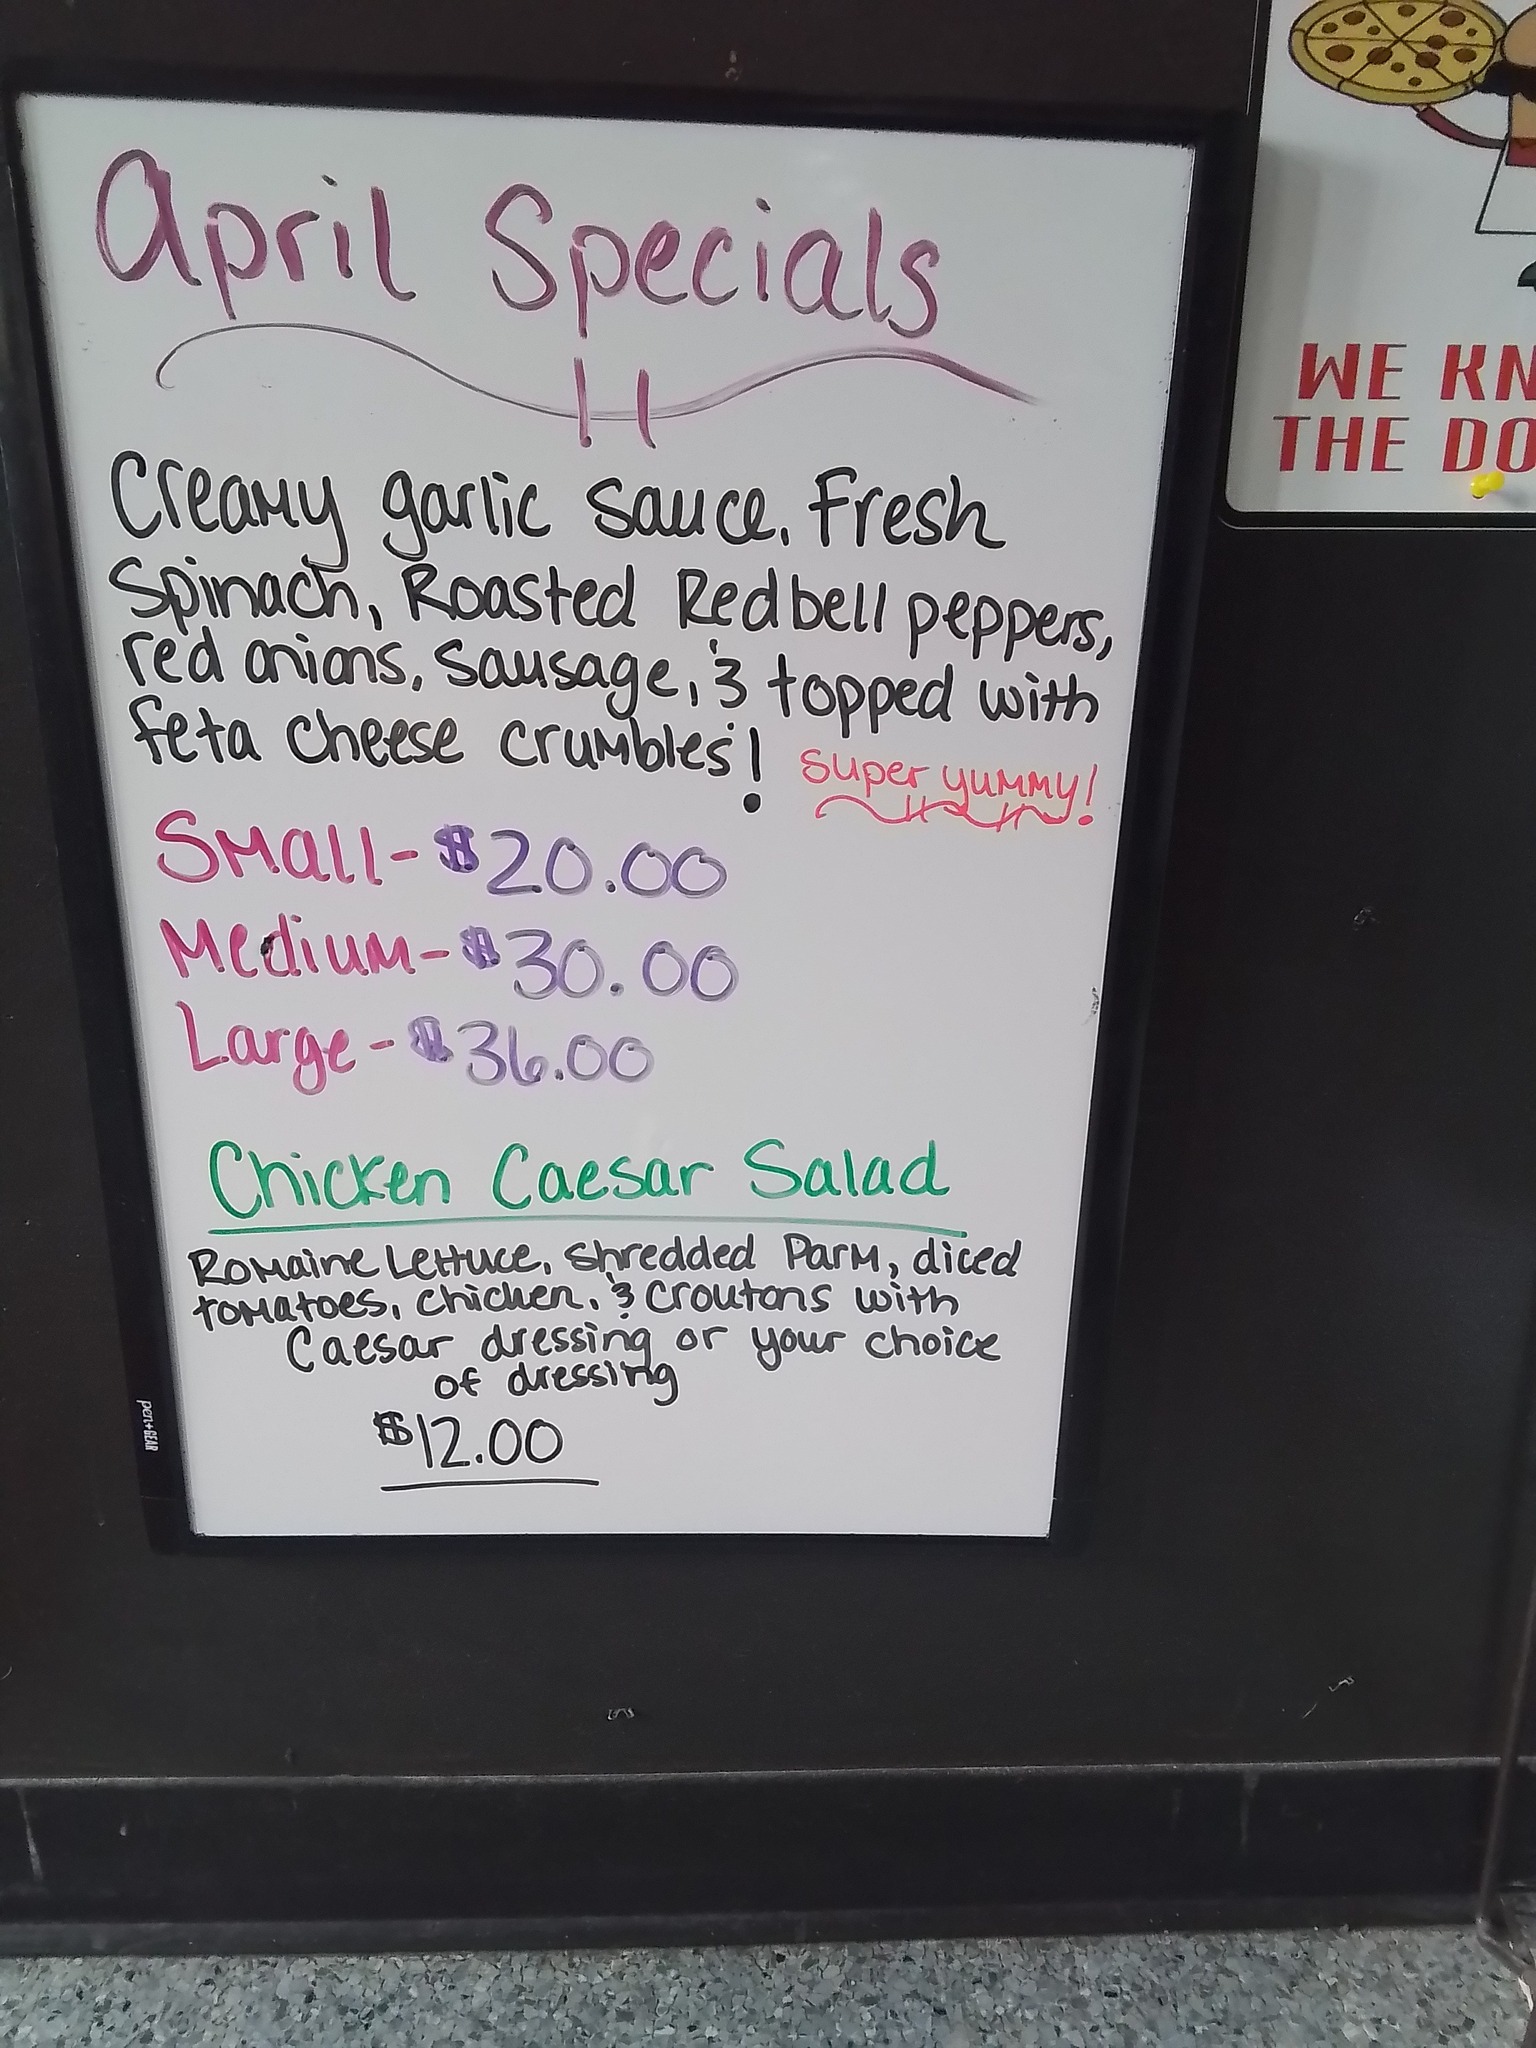 April Specials
Creamy garlic sauce, Fresh
Spinach, Roasted Red bell peppers,
red onions, Sausage, & topped with
feta cheese crumbles!
super yummy!
Small - $20.00
Medium - $30.00
Large - $36.00
Chicken Caesar Salad
Romaine Lettuce, shredded Parm, diced
tomatoes, chicken, & croutons with
Caesar dressing or your choice
of dressing
$12.00
pen+GEAR
WE KN
THE DO